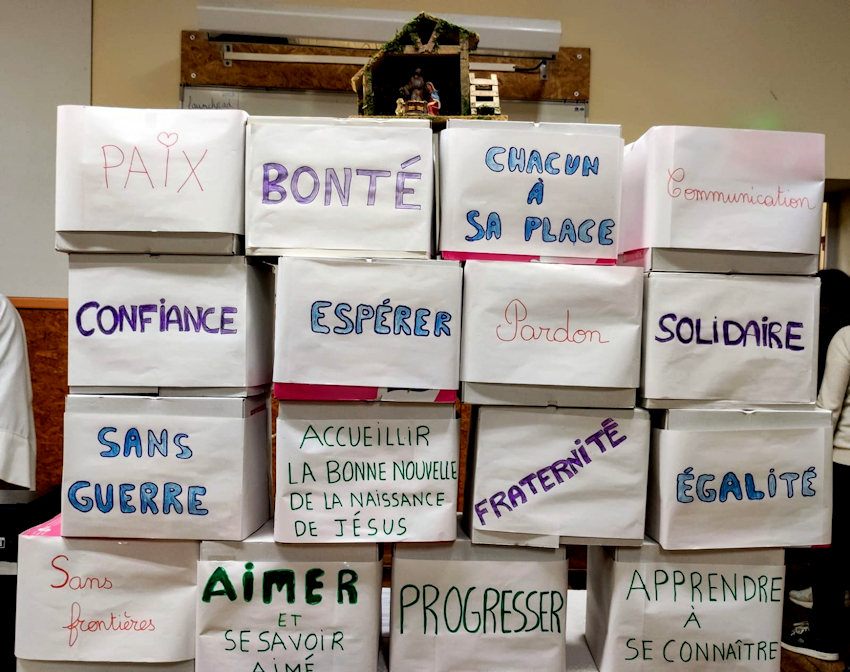 PAIX
BONTÉ
CHACUN
À
SA PLACE
Communication
CONFIANCE
ESPÉRER
Pardon
SOLIDAIRE
SANS
GUERRE
ACCUEILLIR
LA BONNE NOUVELLE
DE LA NAISSANCE
DE JÉSUS
FRATERNITÉ
ÉGALITÉ
Sans
frontières
AIMER
ET
SE SAVOIR
AIMÉ
PROGRESSER
APPRENDRE
À
SE CONNAÎTRE